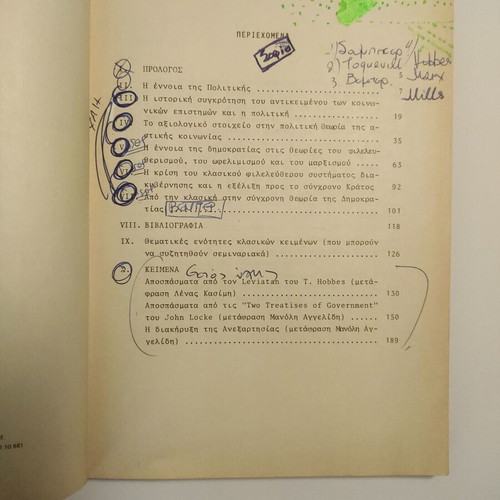 ΠΕΡΙΕΧΟΜΕΝΑ
Σοφία
1) Σουμπέτερ
2) Τοκβίλ
3. Βέμπερ
Hobbes
Marx
Mills
ΠΡΟΛΟΓΟΣ 5
II. Η έννοια της Πολιτικής 7
III Η ιστορική συγκρότηση του αντικειμένου των κοινω-
νικών επιστημών και η πολιτική 19
IV Το αξιολογικό στοιχείο στην πολιτική θεωρία της α-
στικής κοινωνίας 35
V Η έννοια της δημοκρατίας στις θεωρίες του φιλελευ-
θερισμού, του ωφελιμισμού και του μαρξισμού 63
Η κρίση του κλασικού φιλελεύθερου συστήματος δια-
κυβέρνησης και η εξέλιξη προς το σύγχρονο Κράτος 92
VII Από την κλασική στην σύγχρονη θεωρία της Δημοκρα-
τίας ΒΕΜΠΕΡ 101
VIII. ΒΙΒΛΙΟΓΡΑΦΙΑ 118
IX. Θεματικές ενότητες κλασικών κειμένων (που μπορούν
να συζητηθούν σεμιναριακά) 126
ΚΕΙΜΕΝΑ
Αποσπάσματα από τον Leviatan του T. Hobbes (μετά-
φραση Λένας Κασίμη) 130
Αποσπάσματα από τις "Two Treatises of Government"
του John Locke (μετάφραση Μανόλη Αγγελίδη) 150
Η διακήρυξη της Ανεξαρτησίας (μετάφραση Μανόλη Αγ-
γελίδη) 189
ΥΛΗ